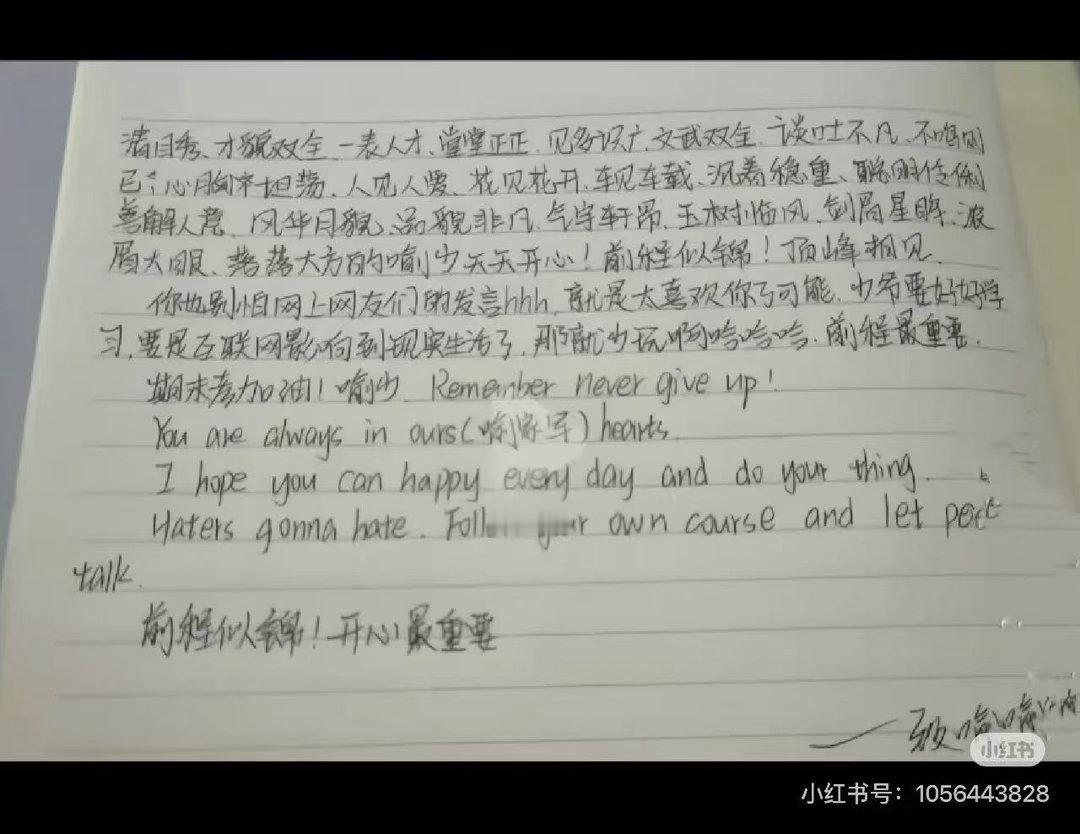 清目秀、才貌双全、一表人才、堂堂正正、见多识广、文武双全、谈吐不凡、不
心胸坦荡、人见人爱、花见花开、车见车载、沉着稳重、聪明伶俐
善解人意、风华月貌、品貌非凡、气宇轩昂、玉树临风、剑眉星眸、浓
眉大眼、落落大方的喻少天天开心!前程似锦!顶峰相见.
你也别怕网上网友们的发言hhh,就是太喜欢你了可能.少爷要好好学
习,要是互联网影响到现实生活了,那就少玩啊哈哈哈.前程最重要.
期末考加油!喻少.Remember never give up!
You are always in ours(喻家军)hearts.
I hope you can happy every day and do your thing.
Haters gonna hate. Follow your own course and let
talk.
前程似锦!开心最重要
——致
小红书
小红书号:1056443828